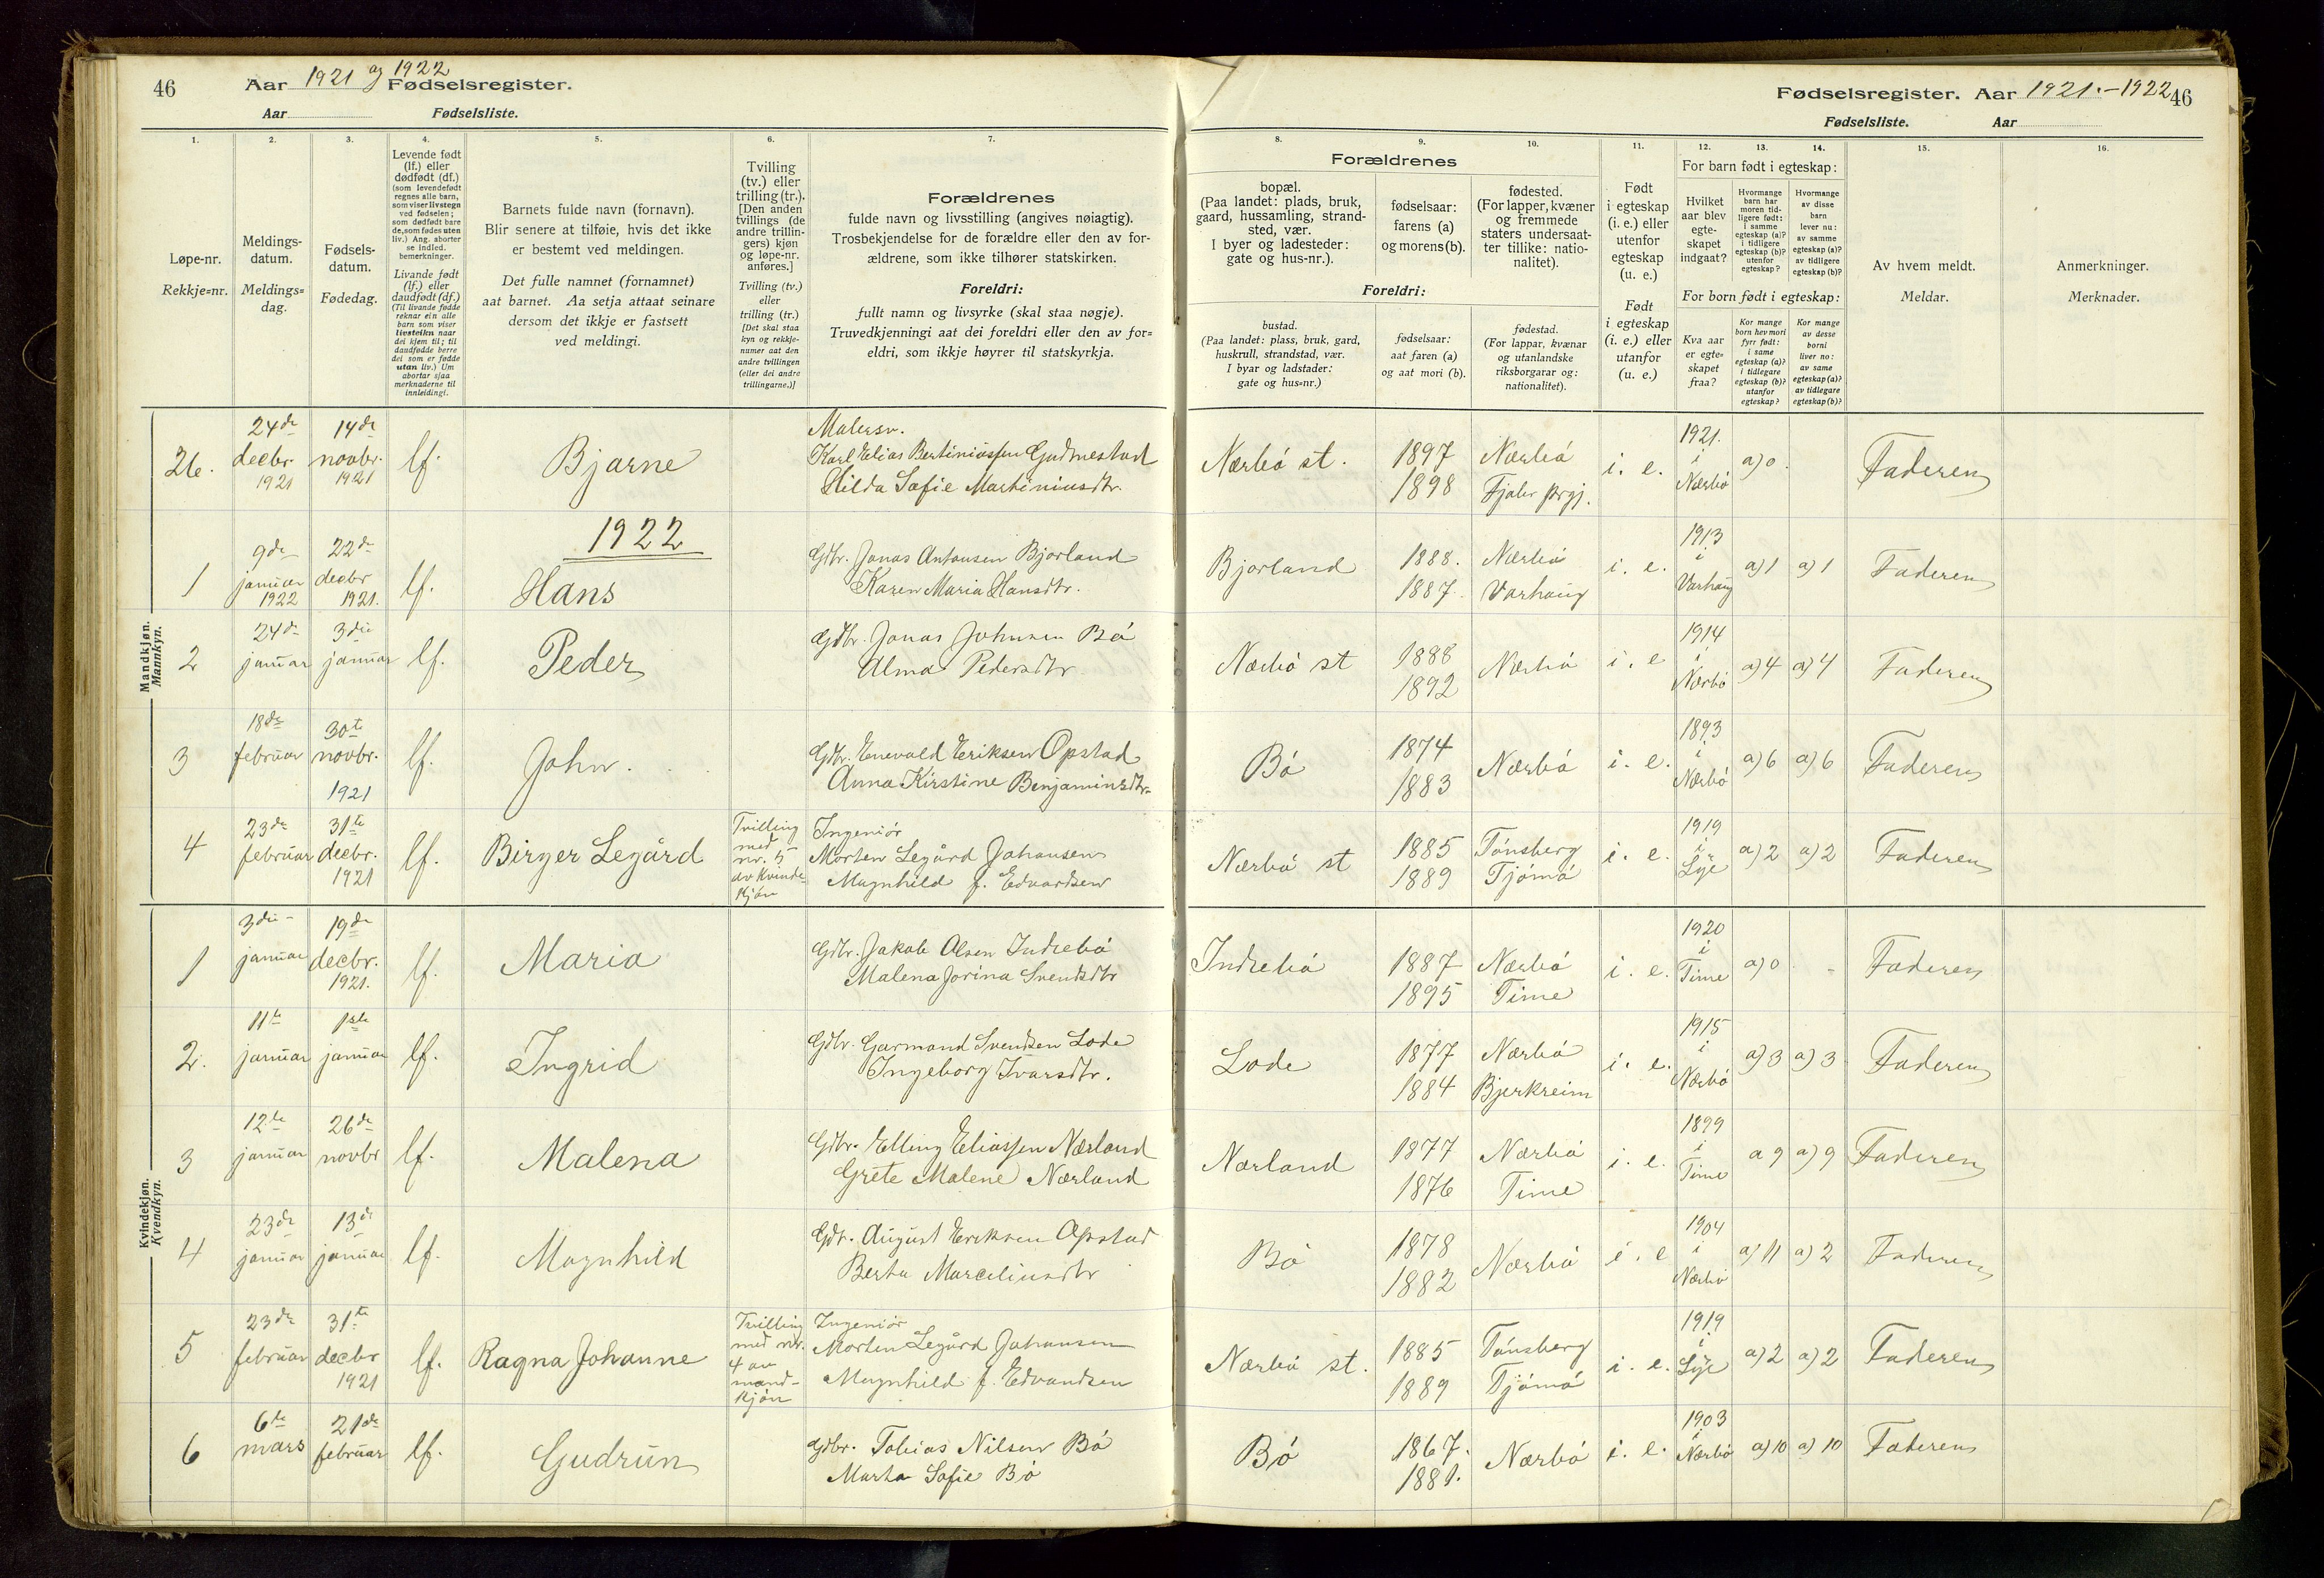 46
Aar 1921 og 1922 Fødselsregister.
Aar Fødselsliste.
Fødselsregister. Aar 1921.-1922
46
Fødselsliste. Aar
1.
2.
3.
4.
5.
6.
7.
8.
9.
10.
11.
12.
13.
14.
15.
16.
Løpe-nr.
Rekkje=nr.
Meldings-
datum.
Meldings=
dag.
Fødsels-
datum.
Fødedag.
Levende født
(lf.) eller
dødfødt (df.)
(som levendefødt
regnes alle barn,
som viser livstegn
ved fødselen;
som dødfødt bare
de, som fødes uten
liv.) Ang. aborter
se indled.
bemerkninger.
Livande født
(lf.) eller
daudfødt (df.)
(Til livande fødde
reknar ein alle
barn som viser
livsteikn naar
dei kjem til; til
daudfødde berre
dei som er fødde
utan liv.) Um
abortar sjaa
merknaderne til
innleidingi.
Barnets fulde navn (fornavn).
Blir senere at tilføie, hvis det ikke
er bestemt ved meldingen.
Det fulle namnet (fornamnet)
aat barnet. Aa setja attaat seinare
dersom det ikkje er fastsett
ved meldingi.
Tvilling
(tv.) eller
trilling (tr.).
[Den anden
tvillings (de
andre trillin-
gers) kjøn
og løpe-nr.
anføres.]
Tvilling (tv.)
eller
trilling (tr.)
[Det skal staa
kyn og rekkje-
numer aat den
andre tvillingen
(eller dei andre
trillingarne.)]
Forældrenes
fulde navn og livsstilling (angives nøiagtig).
Trosbekjendelse for de forældre eller den av for-
ældrene, som ikke tilhører statskirken.
Foreldri:
fullt namn og livsyrke (skal staa nøgje).
Truvedkjenningi aat dei foreldri eller den av for=
eldri, som ikkje høyrer til statskyrkja.
Forældrenes
bopæl.
(Paa landet: plads, bruk,
gaard, hussamling, strand-
sted, vær.
I byer og ladesteder:
gate og hus-nr.).
fødselsaar:
farens (a)
og morens (b).
fødested.
(For lapper, kvæner
og fremmede
staters undersaat-
ter tillike: natio-
nalitet).
Foreldri:
bustad.
(Paa landet: plass, bruk, gard,
huskrull, strandstad, vær.
I byar og ladstader:
gate og hus=nr.)
fødselsaar:
aat faren (a)
og aat mori (b).
fødestad.
(For lappar, kvænar
og utanlandske
riksborgarar og:
nationalitet).
Født
i egteskap
(i. e.) eller
utenfor
egteskap
(u. e.)
Født
i egteskap
(i. e.) eller
utanfor
(u. e.)
For barn født i egteskap:
Hvilket
aar blev
egte-
skapet
indgaat?
Hvormange
barn har
moren tid-
ligere født:
i samme
egteskap (a)?
i tidligere
egteskap (b)?
utenfor
egteskap?
Hvormange
av disse
barn
lever nu:
av samme
egteskap (a)?
av tidligere
egteskap (b)?
For born født i egteskap:
Kva aar
er egte=
skapet
fraa?
Kor mange
born hev mori
fyrr født:
i same
egteskap (a)?
i tidlegare
egteskap (b)?
utanfor
egteskap?
Kor mange
av desse
borni
liver no:
av same
egteskap (a)?
av tidlegare
egteskap (b)?
Av hvem meldt.
Meldar.
Anmerkninger.
Merknader.
Mandkjøn.
Mannkyn.
26. 24de decbr. 1921 14de novbr. 1921 lf. Bjarne
Malersv.
Karl Elias Bertiniussen Gudmestad
Hilda Sofie Martiniusdtr.
Nærbö st. 1897 1898 Nærbö Fjaler prgj. i. e. 1921. i Nærbö a) 0. Faderen
1922
1 9de januar 1922 22de decbr 1921. lf. Hans
Gdbr. Jonas Antonsen Bjorland
Karen Maria Hansdtr.
Bjorland 1888. 1887. Nærbö Varhaug i. e. 1913 i Varhaug a) 1 a) 1 Faderen
2 24de januar 3die januar lf. Peder
Gdbr. Jonas Johnsen Bö
Alma Pedersdtr
Nærbö st 1888 1892 Nærbö i. e 1914 i Nærbö a) 4 a) 4 Faderen
3 18de februar 30te novbr. 1921 lf. John.
Gdbr. Enevald Eriksen Opstad
Anna Kirstine Benjaminsdtr.
Bö 1874 1883 Nærbö i. e. 1893 i Nærbö a) 6 a) 6 Faderen
4 23de februar 31te decbr. 1921 lf. Birger Legård
Tvilling
med
nr. 5
av kvinde-
kjön
Ingeniör
Morten Legård Johansen
Magnhild f. Edvardsen
Nærbö st 1885 1889 Tönsberg Tjömö i. e. 1919 i Lye a) 2 a) 2 Faderen
Kvindekjøn.
Kvendkyn.
1 3die januar 19de decbr. 1921. lf. Maria
Gdbr. Jakob Olsen Indrebö
Malena Jorina Svendsdtr
Indrebö 1887 1895 Nærbö Time i. e. 1920 i Time a) 0. - Faderen
2. 11te januar 1ste januar lf. Ingrid
Gdbr. Garmand Svendsen Lode
Ingeborg Ivarsdtr.
Lode 1877 1884 Nærbö Bjerkreim i. e. 1915 i Nærbö a) 3 a) 3 Faderen
3 12te januar 26de novbr lf. Malena
Gdbr. Elling Eliassen Nærland
Grete Malene Nærland
Nærland 1877 1876 Nærbö Time i. e. 1899 i Time a 9 a) 9 Faderen
4 23de januar 13de januar lf. Magnhild
Gdr. August Eriksen Opstad
Berta Marceliusdtr
Bö 1878 1882 Nærbö i. e 1904 i Nærbö a) 11 a) 2 Faderen
5 23de februar 31te decbr 1921 lf. Ragna Johanne
Tvilling
med nr.
4 av
mand-
kjön
Ingeniör
Morten Legård Johansen
Magnhild f. Edvardsen
Nærbö st. 1885 1889 Tönsberg Tjömö i. e. 1919 i Lye a) 2 a) 2 Faderen
6 6te mars 21de februar lf. Gudrun
Gdbr. Tobias Nilsen Bö
Marta Sofie Bö
Bö 1867. 1881. Nærbö i. e. 1903 i Nærbö a) 10 a) 10 Faderen